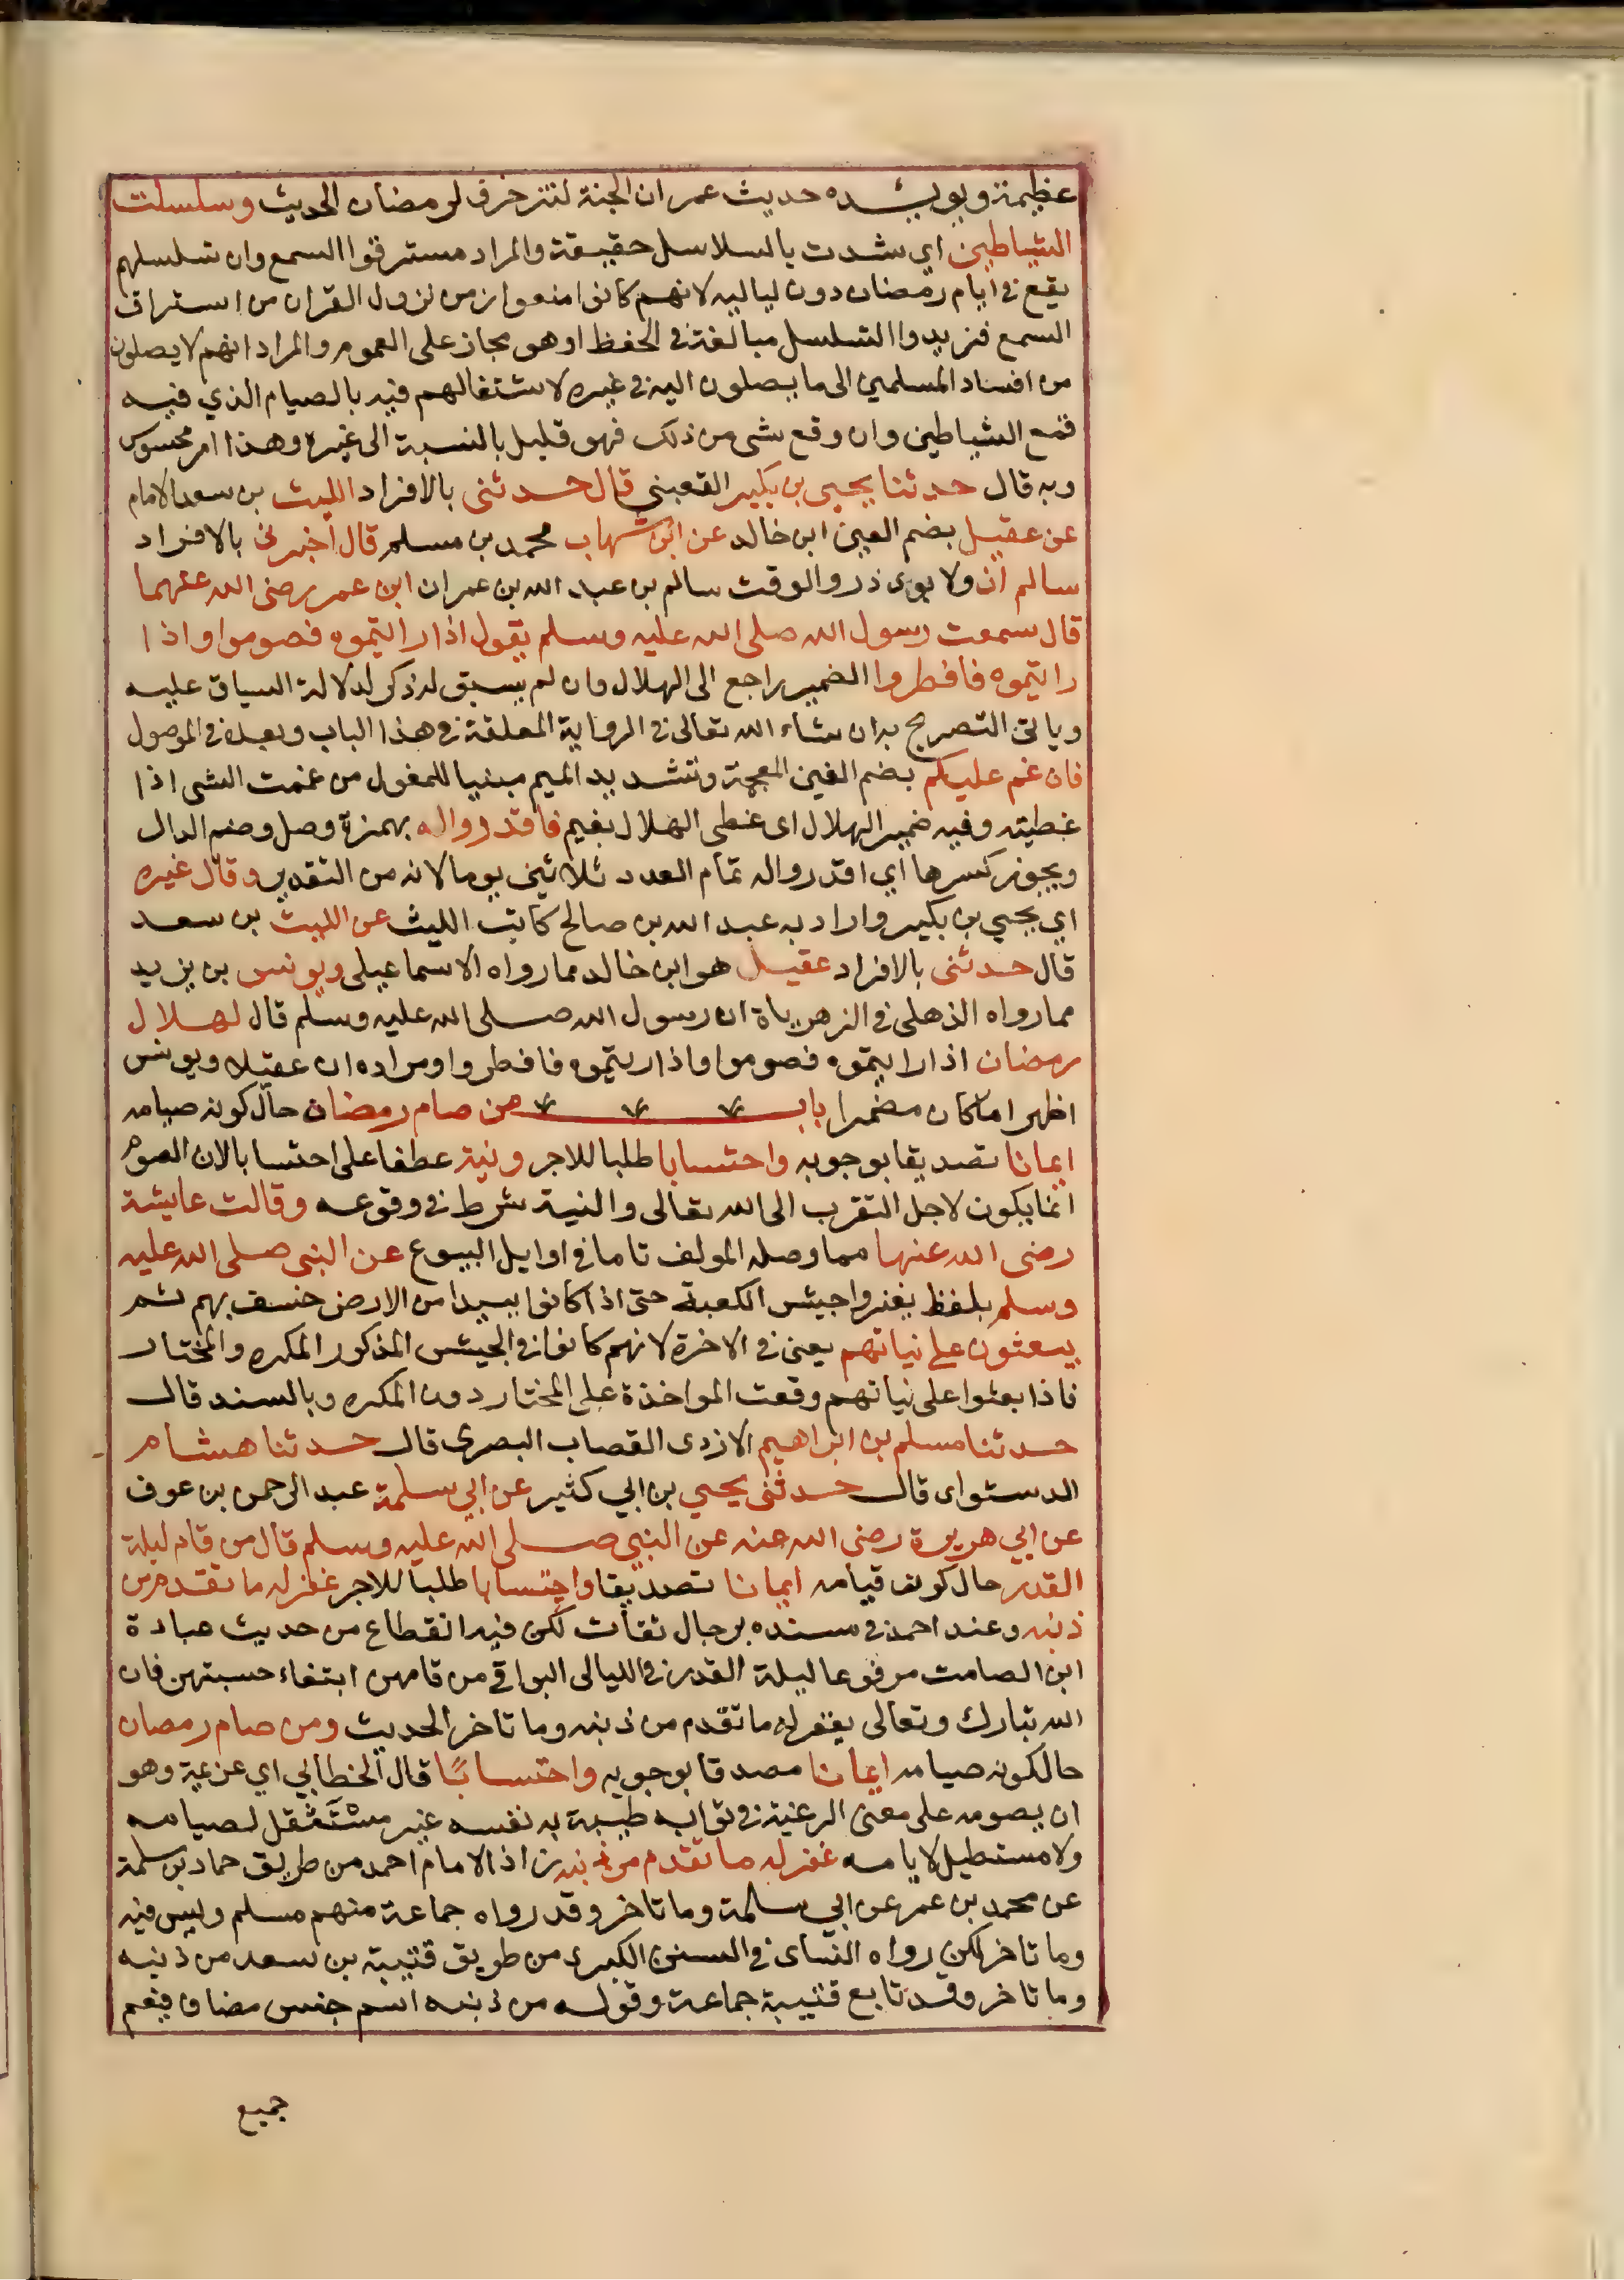 عظيمة ويويده حديث عمر ان الجنة لتتزخرف لرمضان الحديث وسلسلت
الشياطين اي شدت بالسلاسل حقيقة والمراد مسترقوا السمع وان تسلسلهم
يقع في ايام رمضان دون لياليه لانهم كانوا منعوا زمن نزول القران من استراق
السمع فزيدوا التسلسل مبالغة في الحفظ او هو مجاز على العموم والمراد انهم لا يصلون
من افساد المسلمين الى ما يصلون اليه في غيره لاشتغالهم فيه بالصيام الذي فيه
قمع الشياطين وان وقع شي من ذلك فهو قليل بالنسبة الى غيره وهذا امر محسوس
وبه قال حدثنا يحيى بن بكير القعبني قال حدثني بالافراد الليث بن سعد الامام
عن عقيل بضم العين ابن خالد عن ابن شهاب محمد بن مسلم قال أخبرني بالافراد
سالم ان ولا بوى ذر والوقت سالم بن عبد الله بن عمر ان ابن عمر رضى الله عنهما
قال سمعت رسول الله صلى الله عليه وسلم يقول اذا رايتموه فصوموا واذا
رايتموه فافطروا الضمير راجع الى الهلال وان لم يسبق له ذكر لدلالة السياق عليه
وياتى التصريح به ان شاء الله تعالى في الرواية المعلقة في هذا الباب وبعده في الموصول
فان غم عليكم بضم الغين المعجمة وتشديد الميم مبنيا للمفعول من غممت الشى اذا
غطيته وفيه ضمير الهلال اى غطى الهلال بغيم فاقدروا له بهمزة وصل وضم الدال
ويجوز كسرها اي اقدروا له تمام العدد ثلاثين يوما لانه من التقدير وقال غيره
اي يحيي بن بكير واراد به عبد الله بن صالح كاتب الليث عن الليث بن سعد
قال حدثنى بالافراد عقيل هو ابن خالد مما رواه الاسماعيلى ويونس بن يزيد
مما رواه الذهلى في الزهرياة ان رسول الله صلى الله عليه وسلم قال لهلال
رمضان اذا رايتموه فصوموا واذا رايتموه فافطروا ومراده ان عقيلا ويونس
اظهرا ما كان مضمرا باب من صام رمضان حال كونه صيامه
ايمانا تصديقا بوجوبه واحتسابا طلبا للاجر ونية عطفا على احتسابا لان الصوم
انما يكون لاجل التقرب الى الله تعالى والنية شرط في وقوعه وقالت عايشة
رضى الله عنها مما وصله المولف تاما في اوايل البيوع عن النبى صلى الله عليه
وسلم بلفظ يغزوا جيش الكعبة حتى اذا كانوا ببيدا من الارض خسف بهم ثم
يبعثون على نياتهم يعنى في الاخرة لانهم كانوا في الجيش المذكور المكره والمختار
فاذا بعثوا على نياتهم وقعت المواخذة على المختار دون المكره وبالسند قال
حدثنا مسلم بن ابراهيم الازدى القصاب البصرى قال حدثنا هشام
الدستواى قال حدثنى يحيي بن ابي كثير عن ابي سلمة عبد الرحمن بن عوف
عن ابي هريرة رضى الله عنه عن النبي صلى الله عليه وسلم قال من قام ليلة
القدر حال كونه قيامه ايمانا تصديقا واحتسابا طلبا للاجر غفر له ما تقدم من
ذنبه وعند احمد في مسنده برجال ثقات لكن فيه انقطاع من حديث عبادة
ابن الصامت مرفوعا ليلة القدر في الليالى البواقي من قامهن ابتغاء حسبتهن فان
الله تبارك وتعالى يغفر له ما تقدم من ذنبه وما تاخر الحديث ومن صام رمضان
حالكونه صيامه ايمانا مصدقا بوجوبه واحتسابًا قال الخطابي اي عزيمة وهو
ان يصومه على معنى الرغبة في ثوابه طيبة به نفسه غير مستثقل لصيامه
ولا مستطيل لايامه غفر له ما تقدم من ذنبه زاذ الامام احمد من طريق حماد بن سلمة
عن محمد بن عمر عن ابي سلمة وما تاخر وقد رواه جماعة منهم مسلم وليس فيه
وما تاخر لكن رواه النساى في السنن الكبرى من طريق قتيبة بن سعد من ذنبه
وما تاخر وقد تابع قتيبة جماعة وقوله من ذنبه اسم جنس مضاف فيعم
جميع